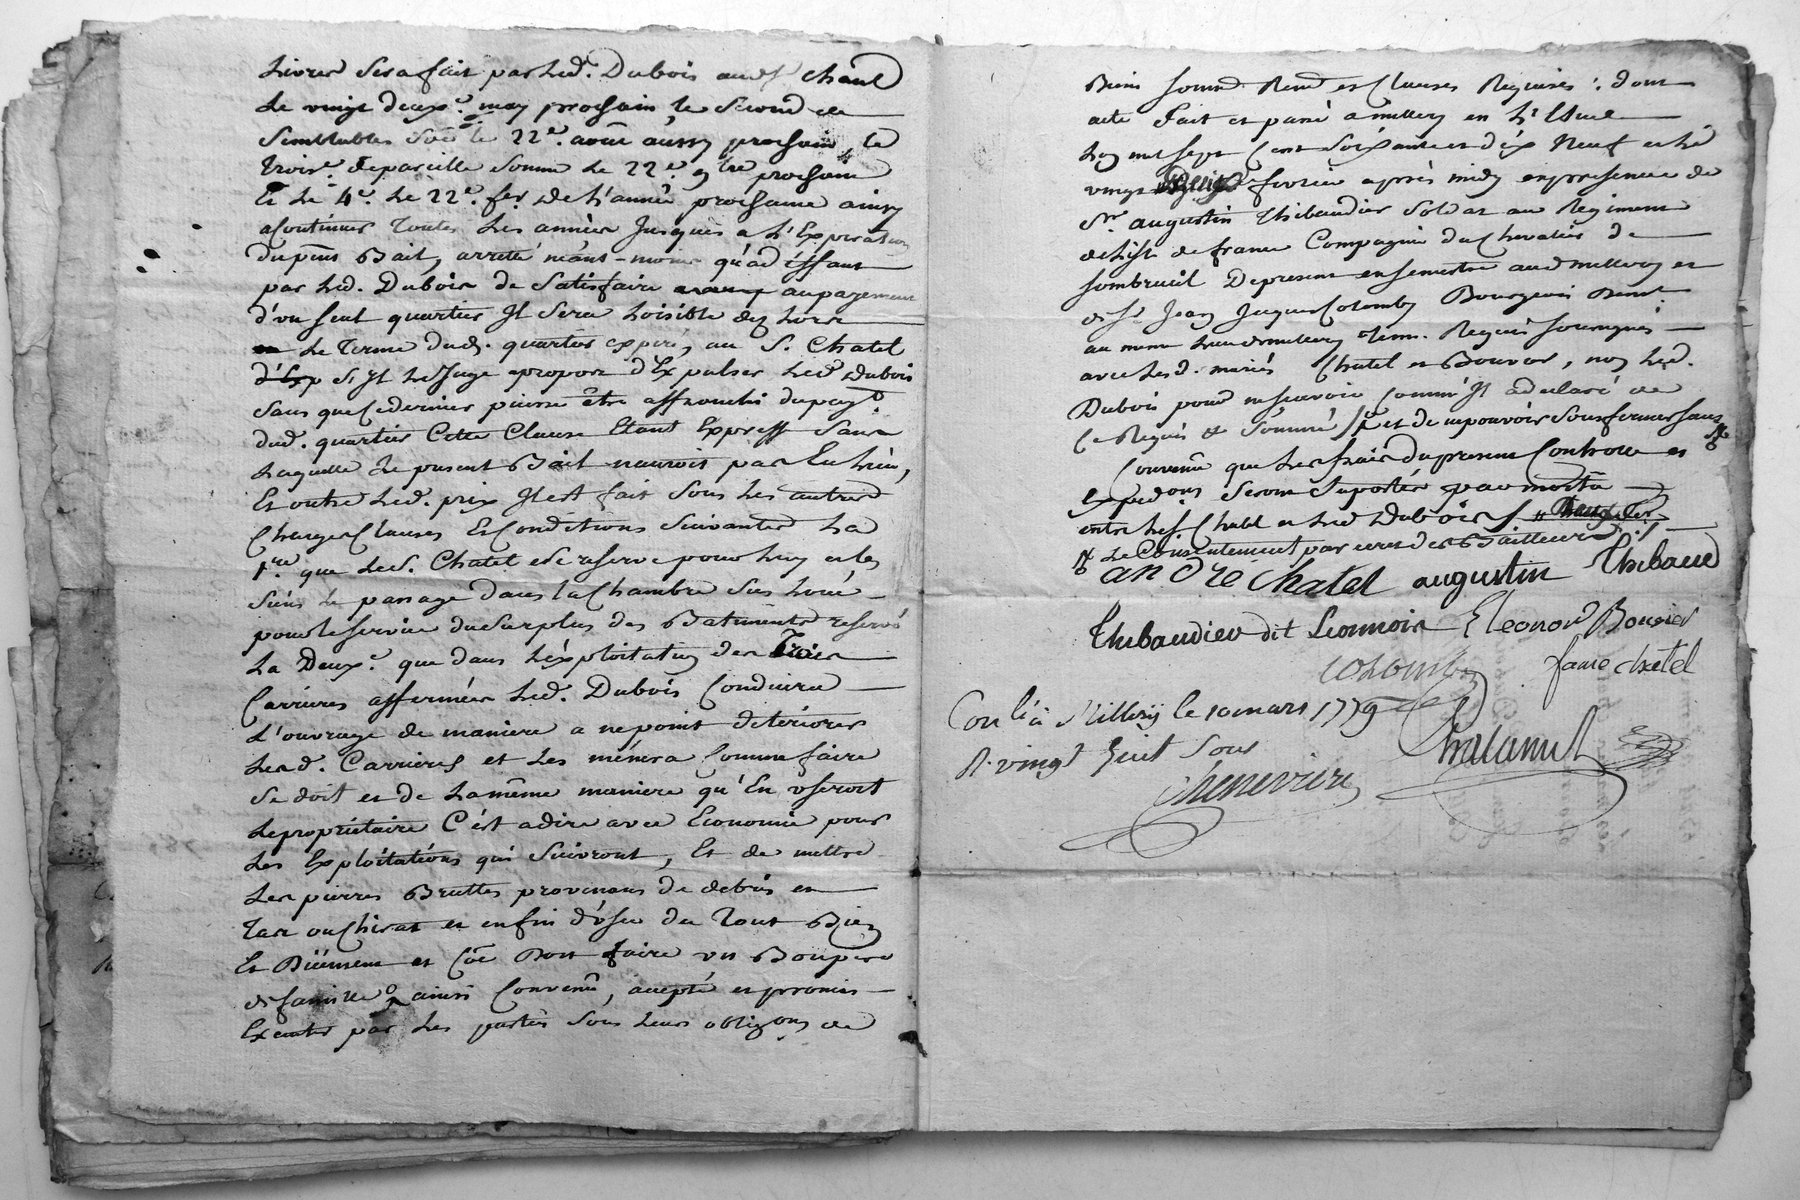 Livres sera fait par Led. Dubois aud. S. Chatel
Le vingt deuxe. may prochain, le second de
Semblables Sōē le 22e. aout aussy prochain, Le
trois.e depareille Somme Le 22e. 9bre prochain
Et Le 4e. Le 22e. fer. de L'année prochaine ainsy
acontinuer toutes Les années Jusques a L'Expiration
dupnt Bail, arretté néant-moins qu'ad'éffaut
par Led. Dubois de Satisfaire aupayement
d'un seul quartier Il sera Loisible
Le terme dud. quartier expiré, au S. Chatel
S'il LeJuge apropos d'Expulser Led. Dubois
Sans que Cedernier puisse être affranchi dupayt.
dud. quartier Cette Clause Etant Expresse Sans
Laquelle Le present Bail nauroit pas Eu Lieu,
Et outre Led. prix Il est fait Sous Les autres
Charges Clauses Et Conditions Suivantes La
1re. que Led. S. Chatel se reserve pour Luy et les
Siens Le passage dans la Chambre Sus Loué
pour le service du Surplus des Batiments reservé
La Deuxe. que dans L'éxploitation des Trois
Carrieres affermées Led. Dubois Conduira
L'ouvrage de maniere a ne point detériorer
Lesd. Carrieres et Les ménera Comme faire
Se doit et de La même maniere qu'En useroit
Le propriétaire C'est adire avec Economie pour
Les Exploitations qui Suivront, Et de mettre
Les pierres Bruttes provenans de debris en
Tas ou Chirat et enfin d'user du Tout Bien
Et Düement et Cōē Doit faire un Bon pere
de famille ainsi Convenu, accepté et promis
Executer par Les parties Sous Leurs obligons. de
Biens Soumis Renon. et Clauses Requises : dont
acte Fait et passé à millery en L'Etude
L'an mil sept Cent Soixante et dix Neuf et Le
vingt fevrier après midy en presence de
Sr. augustin Thibaudier Soldat au Regiment
de L'isle de france Compagnie du Chevalier de
sombreuil De present en semestre aud. millery et
de Sr. Jean Jaques Colomby Bourgeois Demt.
au meme Lieu de millery Temoins Requis soussignés
avec Lesd. mariés Chatel et Bouvier, non Led.
Dubois pour ne scavoir Comm'Il a declaré de
Ce Requis & Sommé et de ne pouvoir Sousfermer sans
Convenu que Les frais du present Controlle et
expedons. Seront Suportés par moitié
entre Led. S. Chatel et Led. Dubois
Le Consentement par ecrit des Bailleurs
andré Chatel augustin Thibaud
Thibaudier dit Leonnois Eleonor Bouvier
Colomby fame chatel
Con.lé à Millery le 10 mars 1779
R. vingt huit sous Chalamel
Chenevriere